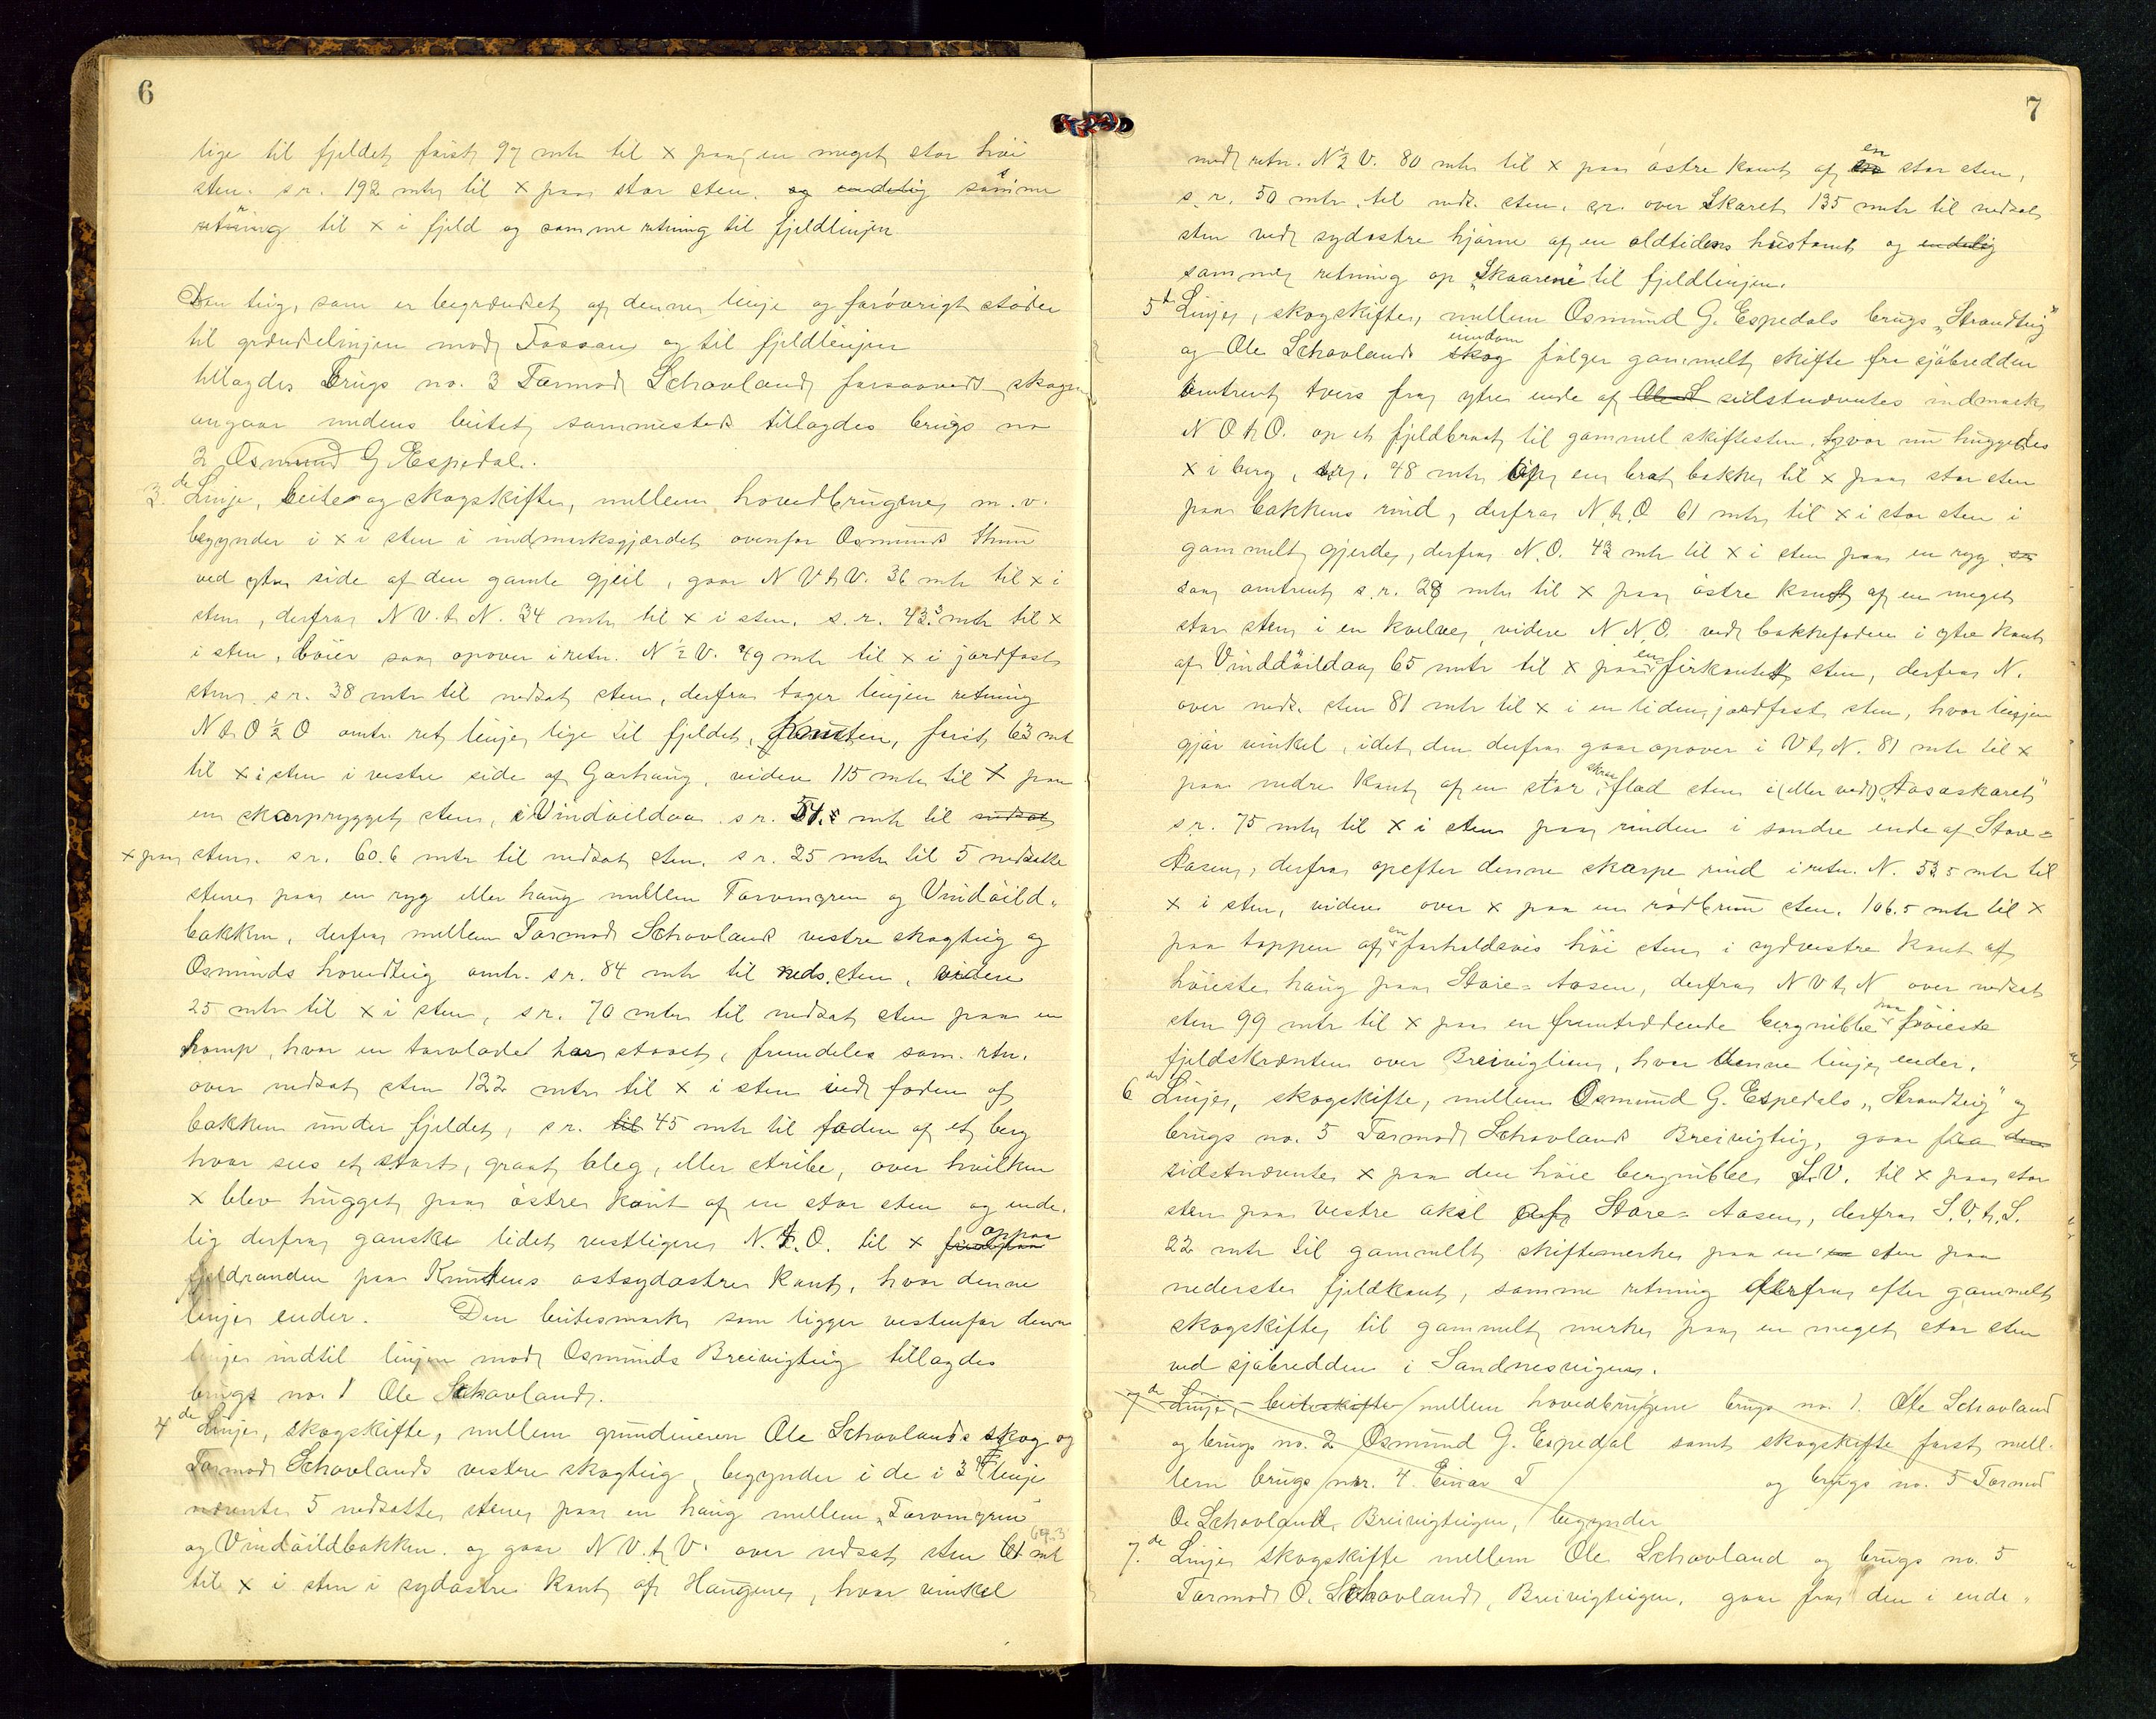 6
lige til fjeldet først 97 mtr til x paa en meget stor høi
sten. s r. 192 mtr til x paa stor sten. og endelig samme
retning til x i fjeld og samme retning til fjeldlinjen.
Den teig, som er begrændset af denne linje og forøvrigt støder
til grændselinjen mod Fossan og til fjeldlinjen
tillagdes Brugs no. 3 Tormod Schovland forsaavidt skogen
angaar medens beitet sammesteds tillagdes brugs no
2 Osmund G Espedal.
3. de Linje, beite og skogskifte, mellem hovedbrugene m. v.
begynder i x i sten i indmarksgjærdet ovenfor Osmunds
ved ytre side af den gamle gjeil, gaar N V t V. 36 mtr til x i
sten, derfra N V. t N. 34 mtr til x i sten. s. r. 43.3 mtr til x
i sten, bøier saa opover i retn. N ½ V. 49 mtr til x i jordfast
sten s r. 38 mtr til nedsat sten, derfra tager linjen retning
N t O ½ O omtr. ret linje lige til fjeldet, Knuten, først 63 mt
til x i sten i vestre side af Garhaug, videre 115 mtr til x paa
en skarprygget sten, i Vindöildaa s r. 51.5 mtr til nedsat
x paa sten. s r. 60.6 mtr til nedsat sten. s r. 25 mtr til 5 nedsatte
stener paa en ryg eller haug mellem Torvmyren og Vindöild-
bakken, derfra mellem Tormod Schovlands vestre skogteig og
Osmunds hovedteig omtr. s r. 84 mtr til neds. sten, videre
25 mtr til x i sten, s r. 70 mtr til nedsat sten paa en
homp, hvor en torvladet har staaet, fremdeles sam. rtn.
over nedsat sten 122 mtr til x i sten ved foden af
bakken under fjeldet, s r. til 45 mtr til foden af et berg
hvor sees et stort, graat bleg, eller stribe, over hvilken
x blev hugget paa østre kant af en stor sten og ende-
lig derfra ganske lidet vestligere N. t. O. til x oppaa
fjeldranden paa Knutens ostsydøstre kant, hvor denne
linje ender. Den beitesmark som ligger vestenfor denne
linje indtil linjen mod Osmunds Breivigteig tillagdes
brugs no. 1 Ole Schovland.
4 de Linje, skogskifte, mellem grundeieren Ole Schovlands skog og
Tormod Schovlands vestre skogteig, begynder i de i 3die linje
nævnte 5 nedsatte stener paa en haug mellem "Torvmyren"
og Vindöildbakken. og gaar N V. t V. over nedsat sten 61 mt
til x i sten i sydøstre kant af Haugene, hvor vinkel
7
med retn. N ½ V. 80 mtr til x paa østre kant af en stor sten,
s. r. 50 mtr. til neds. sten. s r. over Skaret 135 mtr til nedsat
sten ved sydøstre hjørne af en oldtidens hustomt og endelig
samme retning op "Skaarene" til fjeldlinjen.
5te Linje, skogskifte, mellem Osmund G. Espedals brugs "Strandteig"
og Ole Schovlands skog eiendom følger gammelt skifte fra sjøbredden
omtrent tvers fra ytre ende af Ole S sidstnævntes indmark
N O t O. op et fjeldbraat til gammel skiftesten, hvor nu huggedes
x i berg, s r. 48 mtr op en brat bakke til x paa stor sten
paa bakkens rind, derfra N t. O 61 mtr til x i stor sten i
gammelt gjerde, derfra N. O. 43 mtr til x i sten paa en ryg
saa omtrent s. r. 28 mtr til x paa østre kant af en meget
stor sten i en kvelve, videre N N O. ved bakkefoden i ytre kant
af Vinddöildaa 65 mtr til x paa en firkantet sten, derfra N.
over neds. sten 81 mtr til x i en liden jordfast sten, hvor linjen
gjør vinkel, idet den derfra gaar opover i V t N. 81 mtr til x
paa nedre kant af en stor, skraa flad sten i (eller ved) "Aasaskaret"
s r. 75 mtr til x i sten paa rinden i søndre ende af Store-
Aasen, derfra opefter denne skarpe rind i retn. N. 53.5 mtr til
x i sten, videre over x paa en rødbrun sten, 106.5 mtr til x
paa toppen af en forholdsvis høi sten i sydvestre kant af
høieste haug paa Store-Aasen, derfra N V t N over nedsat
sten 99 mtr til x paa en fremtrædende bergnibbe paa høieste
fjeldskrænten over Breiviglien, hvor denne linje ender.
6 te Linje, skogskifte, mellem Osmund G. Espedals "Strandteig" og
brugs no. 5 Tormod Schovlands Breivigteig, gaar fra den
sidstnævnte x paa den høie bergnibbe S.V. til x paa stor
sten paa vestre aksel af Store-Aasen, derfra S. V. t. S.
22 mtr til gammelt skiftemerke paa en sten paa
nederste fjeldkant, samme retning derfra efter gammelt
skogskifte til gammelt merke paa en meget stor sten
ved sjøbredden i Sandnesvigen.
7 de Linje, beiteskifte mellem hovedbrugene brugs no. 1. Ole Schovland
og brugs no. 2 Osmund G. Espedal samt skogskifte først mell-
lem brugs nr. 4. Einar T og brugs no. 5 Tormod
O. Schovland, Breivigteigen, begynder
7. de Linje skogskifte mellem Ole Schovland og brugs no. 5
Tormod O. Schovland, Breivigteigen, gaar fra den i ende-